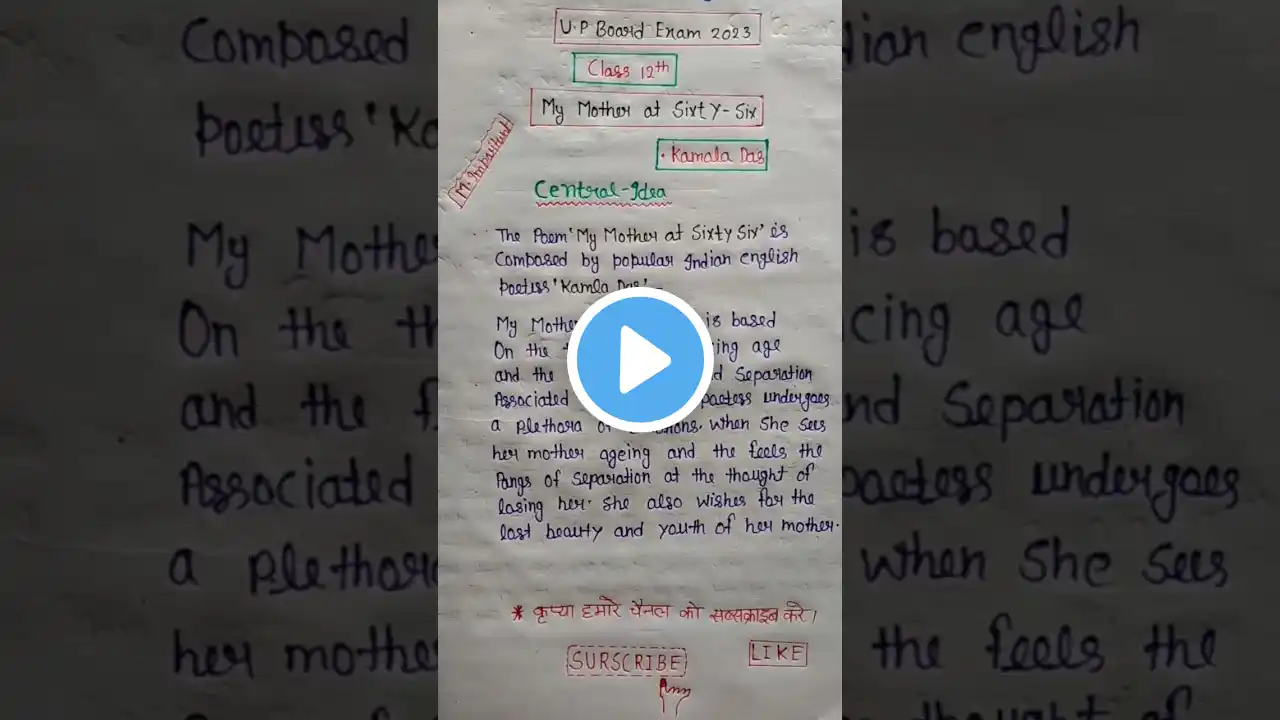 U.P Board Exam 2023
Class 12th
My Mother at Sixty-Six
M. Important
• Kamala Das
Central-Idea
The Poem 'My Mother at Sixty Six' is
Composed by popular Indian english
poetiss 'Kamla Das'
My Mother is based
On the cing age
and the nd Separation
Associated poetess undergoes
a plethora of emotions. when She sees
her mother ageing and the feels the
Pangs of separation at the thought of
losing her. She also wishes for the
lost beauty and youth of her mother.
* कृप्या हमारे चैनल को सब्सक्राइब करे।
SUBSCRIBE
LIKE